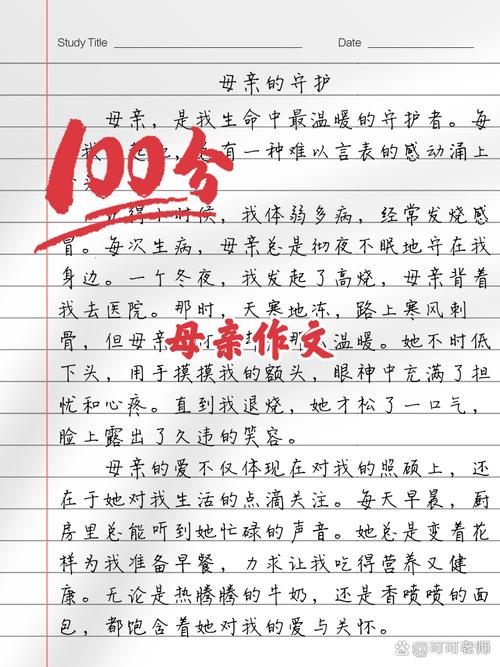 Study Title
Date
母亲的守护
母亲，是我生命中最温暖的守护者。每
我 起 ，有一种难以言表的感动涌上
100分
得小时候，我体弱多病，经常发烧感
冒。每次生病，母亲总是彻夜不眠地守在我
身边。一个冬夜，我发起了高烧，母亲背着
我去医院。那时，天寒地冻，路上寒风刺
骨，但母亲 那 温暖。她不时低
母亲作文
下头，用手摸摸我的额头，眼神中充满了担
忧和心疼。直到我退烧，她才松了一口气，
脸上露出了久违的笑容。
母亲的爱不仅体现在对我的照顾上，还
在于她对我生活的点滴关注。每天早晨，厨
房里总能听到她忙碌的声音。她总是变着花
样为我准备早餐，力求让我吃得营养又健
康。无论是热腾腾的牛奶，还是香喷喷的面
包，都饱含着她对我的爱与关怀。
可可老师